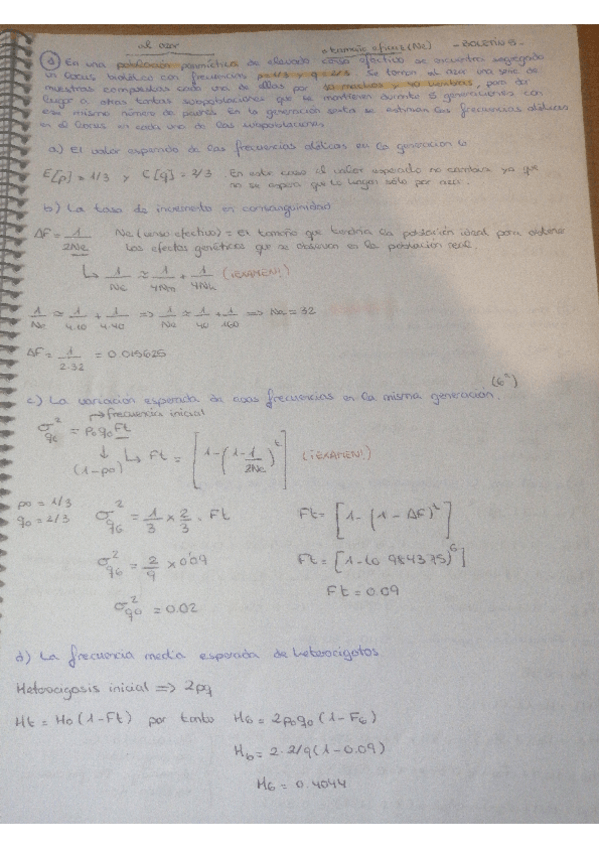 al azar
tamaño eficaz (Ne)
- BOLETIN 5 -
① En una población panmíctica de elevado censo efectivo se encuentra segregando
un locus dialélico con frecuencias p=1/3 y q=2/3. Se toman al azar una serie de
muestras compuestas cada una de ellas por 10 machos y 40 hembras, para dar
lugar a otras tantas subpoblaciones que se mantienen durante 5 generaciones con
ese mismo número de padres. En la generación sexta se estiman las frecuencias alélicas
en el locus en cada una de las subpoblaciones.
a) El valor esperado de las frecuencias alélicas en la generación 6
E[p] = 1/3 y E[q] = 2/3. En este caso el valor esperado no cambia ya que
no se espera que lo haga sólo por azar.
b) La tasa de incremento en consanguinidad
ΔF = 1/2Ne Ne (censo efectivo) = El tamaño que tendría la población ideal para obtener
los efectos genéticos que se observan en la población real.
↳ 1/Ne ≈ 1/4Nm + 1/4Nh (¡EXAMEN!)
1/Ne ≈ 1/4.10 + 1/4.40 => 1/Ne ≈ 1/40 + 1/160 => Ne = 32
ΔF = 1/2.32 = 0.015625
c) La variación esperada de esas frecuencias en la misma generación. (6ª)
→ frecuencia inicial
σ²q6 = p0q0Ft
(1-p0) ↳ Ft = [1-(1-1/2Ne)^t] (¡EXAMEN!)
p0 = 1/3
q0 = 2/3
σ²q6 = 1/3 x 2/3 . Ft
Ft = [1-(1-ΔF)^t]
σ²q6 = 2/9 x 0'09
Ft = [1-(0.984375)^6]
σ²q0 = 0.02
Ft = 0.09
d) La frecuencia media esperada de heterocigotos
Heterocigosis inicial => 2pq
Ht = H0 (1-Ft) por tanto H6 = 2p0q0 (1-F6)
H6 = 2·2/9 (1-0.09)
H6 = 0.4044